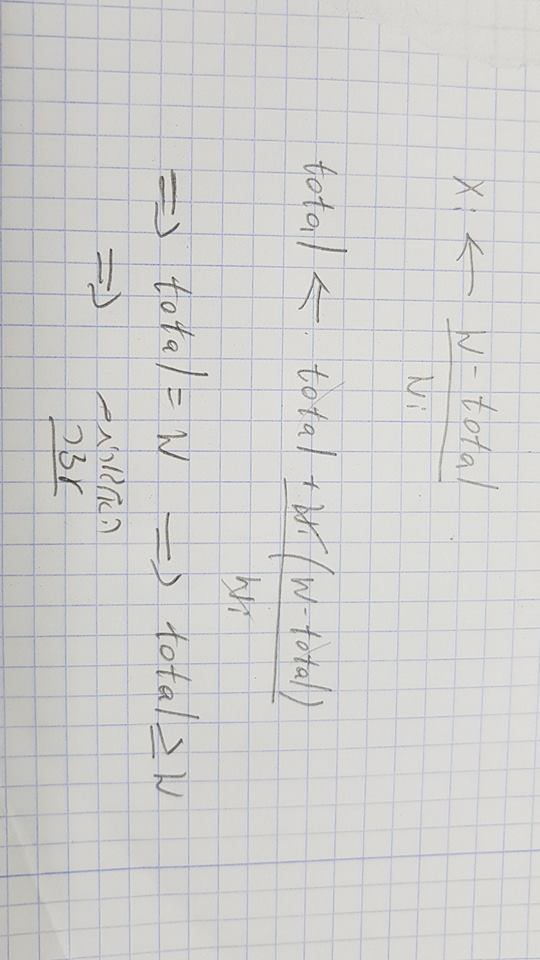 xi ← W - total
Wi
total ← total + Wi (W - total)
Wi
⇒ total = W ⇒ total ≥ W
⇒ האלגוריתם
עצר